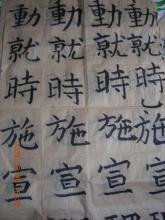 動就時施宣
動就時施宣
動就時施宣
動就時施宣